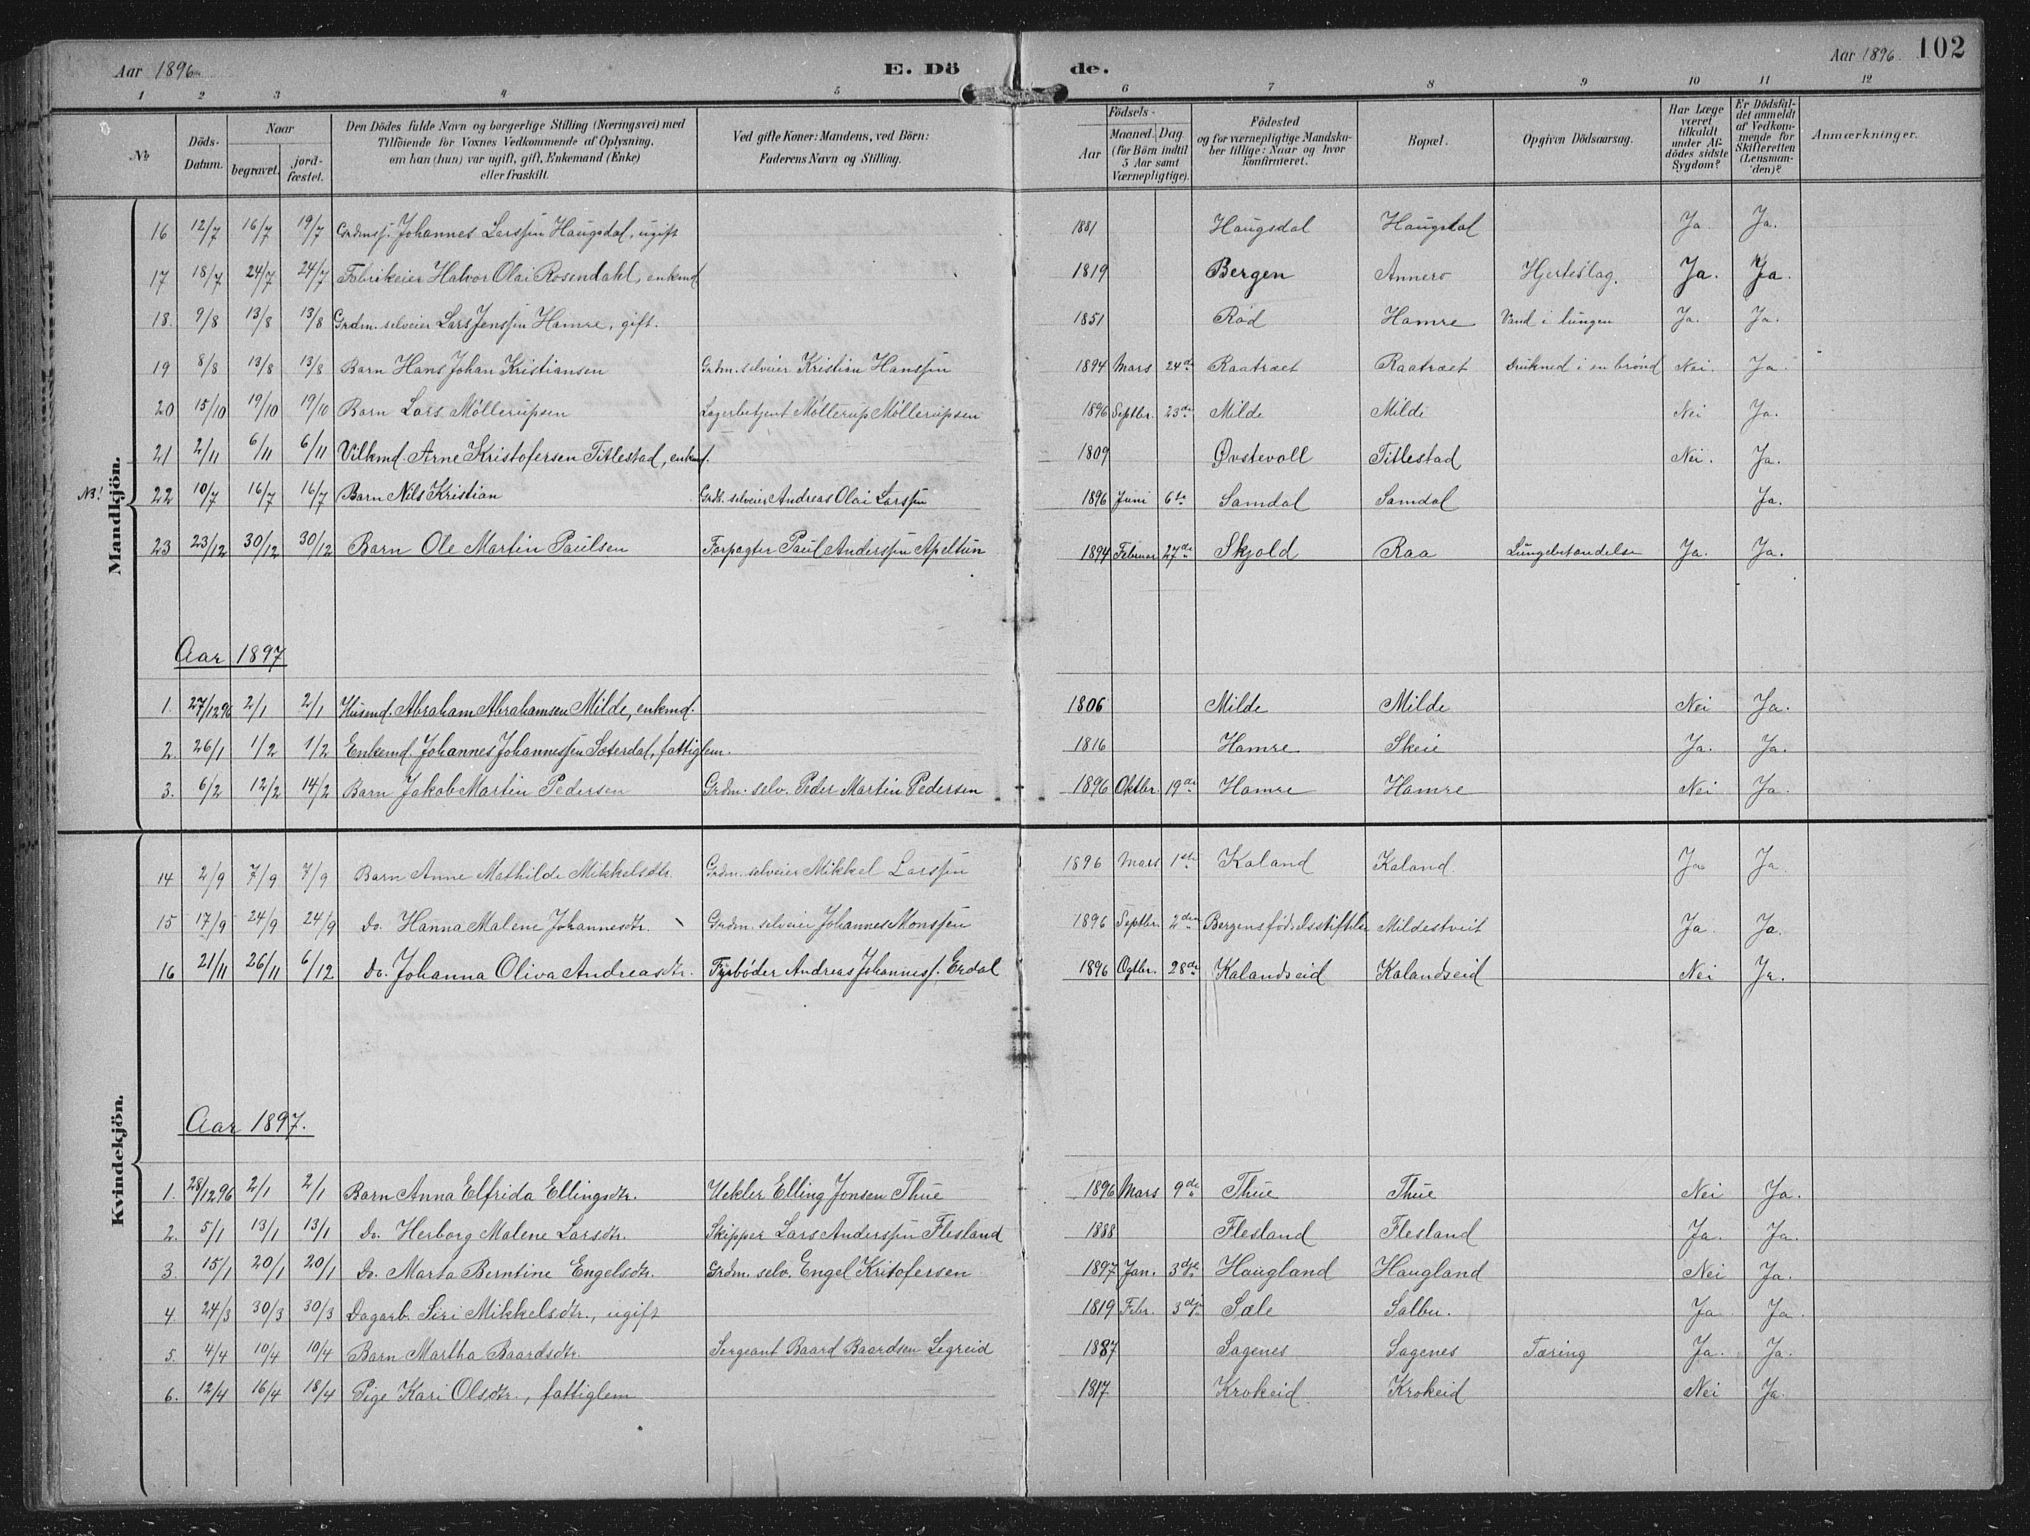 Aar 1896 E. Dö de. Aar 1896. 102
1 2 3 4 5 6 7 8 9 10 11 12
No Döds-Datum. Naar begravet. jordfæstet. Den Dödes fulde Navn og borgerlige Stilling (Næringsvei) med Tilföiende for Voxnes Vedkommende af Oplysning, om han (hun) var ugift, gift, Enkemand (Enke) eller fraskilt. Ved gifte Koner: Mandens, ved Börn: Faderens Navn og Stilling. Födsels- Aar Maaned. Dag. (for Börn indtil 5 Aar samt Værnepligtige). Födested og for værnepligtige Mandskaber tillige: Naar og hvor konfirmeret. Bopæl. Opgiven Dödsaarsag. Har Læge været tilkaldt under Afdödes sidste Sygdom? Er Dödsfaldet anmeldt af Vedkommende for Skifteretten (Lensmanden)? Anmærkninger.
Mandkjön.
16 12/7 16/7 19/7 Grdmsf. Johannes Larssen Haugsdal, ugift 1881 Haugsdal Haugsdal Ja. Ja.
17 18/7 24/7 24/7 Fabrikeier Halvor Olai Rosendahl, enkmd 1819 Bergen Annero Hjerteslag. Ja. Ja.
18. 9/8 13/8 13/8 Grdm. selveier Lars Jenssen Hamre, gift. 1851 Röd Hamre Vand i lungen Ja. Ja.
19 8/8 13/8 13/8 Barn Hans Johan Kristiansen Grdm. selveier Kristian Hanssen 1894 Mars 24de Raatræet Raatræet Drukned i en brönd Nei. Ja.
20 15/10 19/10 19/10 Barn Lars Möllerupsen Lagerbetjent Möllerup Möllerupsen 1896 Septbr. 23de Milde Milde Nei Ja.
21 2/11 6/11 6/11 Vilkmd. Arne Kristofersen Titlestad, enkmd. 1809 Øvstevoll Titlestad Nei. Ja.
NB! 22 10/7 16/7 16/7 Barn Nils Kristian Grdb. selveier Andreas Olai Larssen 1896 Juni 6te Samdal Samdal Ja.
23 23/12 30/12 30/12 Barn Ole Martin Paulsen Forpagter Paul Anderssen Apeltun 1894 Februar 27de Skjold Raa Lungebetændelse Ja. Ja.
Aar 1897
1. 27/12 96 2/1 2/1 Husmd. Abraham Abrahamsen Milde, enkmd. 1806 Milde Milde Nei Ja.
2. 26/1 1/2 1/2 Enkemd. Johannes Johannessen Sæterdal, fattiglem. 1816 Hamre Skeie Ja. Ja.
3. 6/2 12/2 14/2 Barn Jakob Martin Pedersen Grdm. selv. Peder Martin Pedersen 1896 Oktbr. 19de Hamre Hamre Nei Ja.
Kvindekjön.
14 2/9 7/9 7/9 Barn Anne Mathilde Mikkelsdtr. Grdm. selveier Mikkel Larssen 1896 Mars 1ste Kaland Kaland. Ja Ja
15 17/9 24/9 24/9 Do. Hanna Malene Johannesdtr. Grdm. selveier Johannes Monssen 1896 Septbr. 2den Bergens födselsstiftelse Mildestveit Ja. Ja.
16 21/11 26/11 6/12 Do. Johanna Oliva Andreasdtr. Fyrböder Andreas Johannesf. Erdal 1896 Ogtbr. 28de Kalandseid Kalandseid Nei Ja.
Aar 1897.
1. 28/12 96 2/1 2/1 Barn Anna Elfrida Ellingsdtr. Uekler Elling Jonsen Thue 1896 Mars 9de Thue Thue Nei Ja.
2. 5/1 13/1 13/1 Do. Herborg Malene Larsdtr. Skipper Lars Anderssen Flesland 1888 Flesland Flesland Ja. Ja.
3. 15/1 20/1 20/1 Do. Marta Berntine Engelsdtr. Grdm. selv. Engel Kristofersen 1897 Jan. 3dje Haugland Haugland Nei Ja.
4 24/3 30/3 30/3 Dagarb. Siri Mikkelsdtr., ugift 1819 Febr. 3dje Sæle Salbu. Ja. Ja.
5. 4/4 10/4 10/4 Barn Martha Baardsdtr. Sergeant Baard Baardsen Segreid 1887 Sagenes Sagenes Tæring Ja. Ja.
6. 12/4 16/4 18/4 Pige Kari Olsdtr., fattiglem 1817 Krokeid Krokeid Nei Ja.